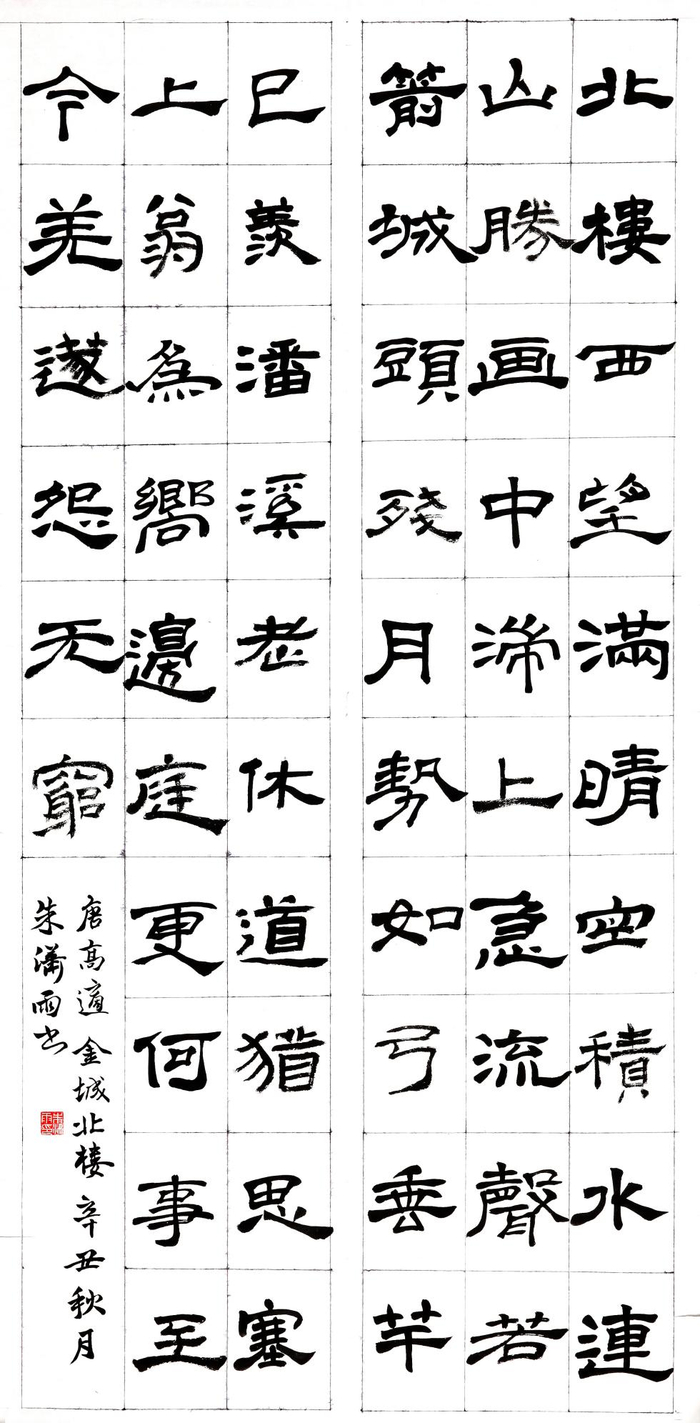 北樓西望滿晴空積水連
山勝画中湍上急流聲若
箭城頭殘月勢如弓垂竿
已羨潘溪老休道猶思塞
上翁為嚮邊庭更何事至
今羌篴怨无窮
唐高適金城北楼辛丑秋月
朱瀟雨书